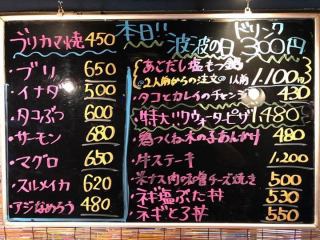 ブリカマ焼 450
・ブリ 650
・イナダ 500
・タコぶつ 600
・サーモン 680
・マグロ 650
・スルメイカ 620
・アジなめろう 480
本日!! 波波の日 ドリンク 300円
あごだし塩もつ鍋
2人前からの注文 1人前 1.100円
・タコとカレイのチャンジャ 430
・特大!! クウォーターピザ 1,480
・鶏つくね きのこあんかけ 480
・牛ステーキ 1.200
・米ナス肉味噌チーズ焼き 500
・ネギ塩ぶた丼 530
・ネギとろ丼 550